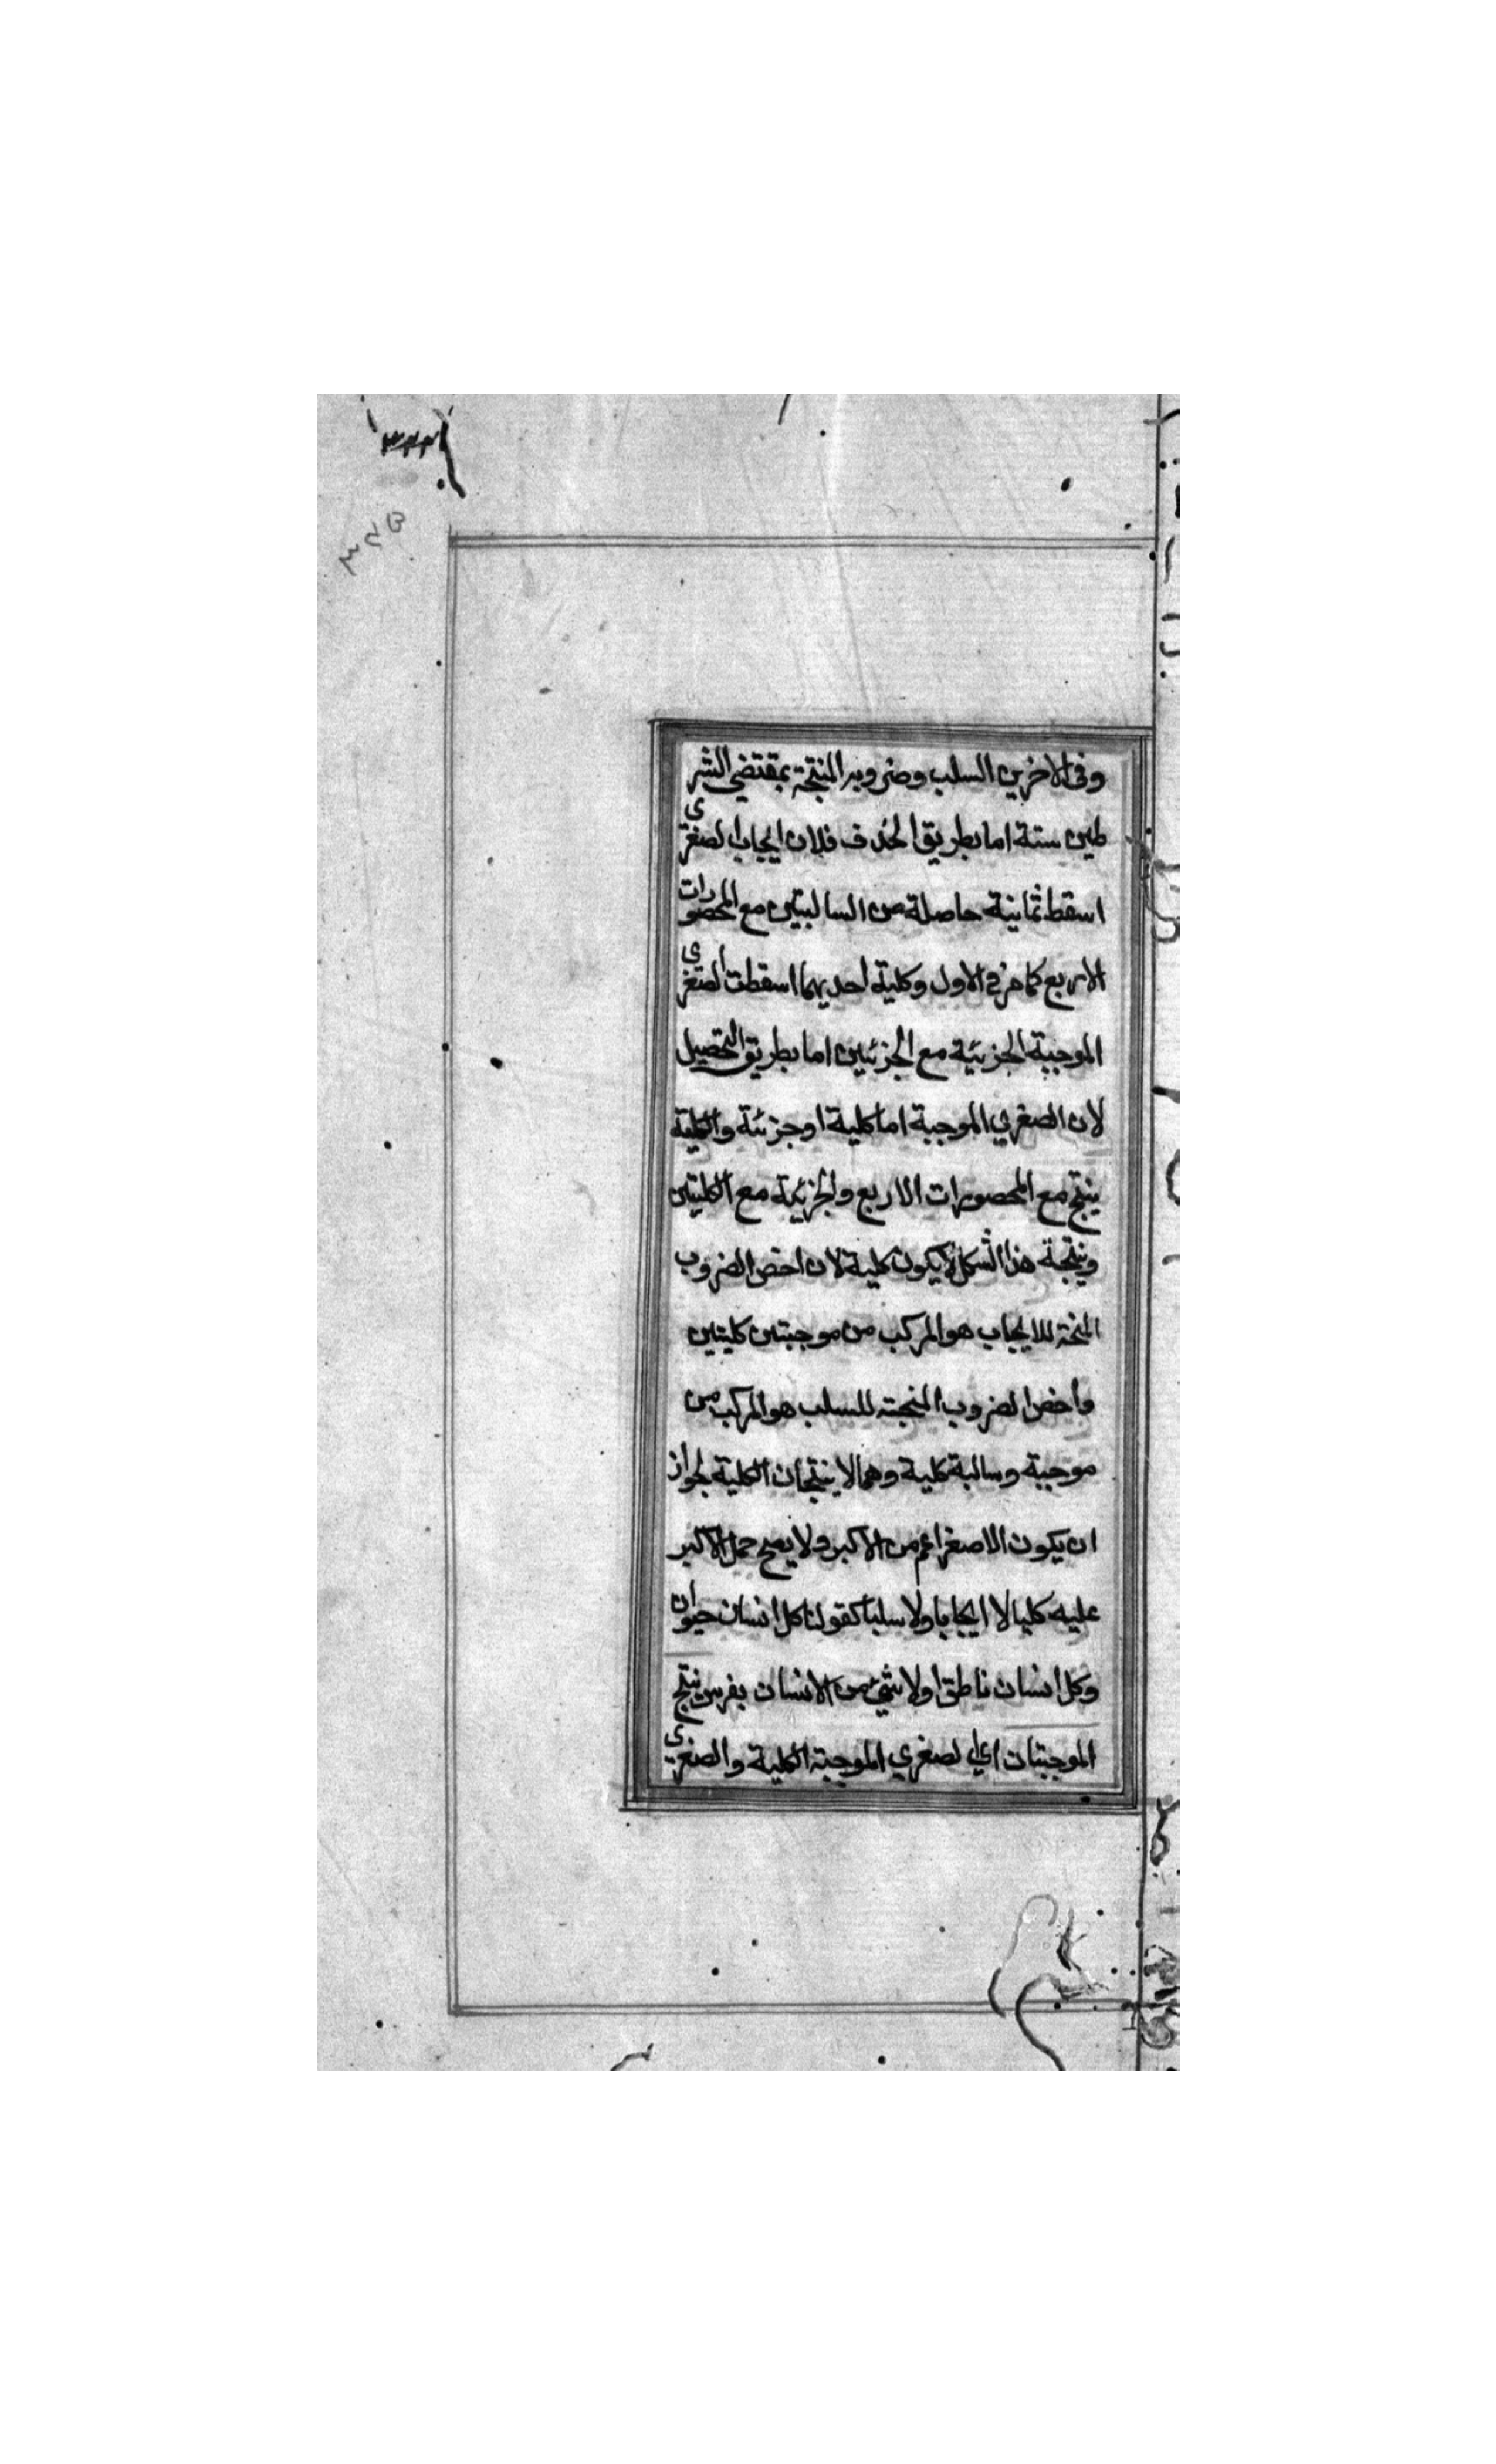 وفى الاخرين السلب وضروبه المنتجة بمقتضى الشر
طين ستة اما بطريق الحذف فلان ايجاب الصغرى
اسقط ثمانية حاصلة من السالبتين مع المحصورات
الاربع كما مر فى الاول وكلية احديهما اسقطت الصغرى
الموجبة الجزئية مع الجزئيين اما بطريق التحصيل
لان الصغري الموجبة اما كلية او جزئية والكلية
ينتج مع المحصورات الاربع والجزئية مع الكليتين
ونتيجة هذا الشكل لا يكون كلية لان اخص الضروب
المنتجة للايجاب هو المركب من موجبتين كليتين
واخص الضروب المنتجته للسلب هو المركب من
موجبة وسالبة كلية وهما لا ينتجان الكلية لجواز
ان يكون الاصغر اعم من الاكبر ولا يصح حمل الاكبر
عليه كليا لا ايجابا ولا سلبا كقولنا كل انسان حيوان
وكل انسان ناطق او لا شئ من الانسان بفرس ينتج
الموجبتان اي الصغري الموجبة الكلية والصغرى